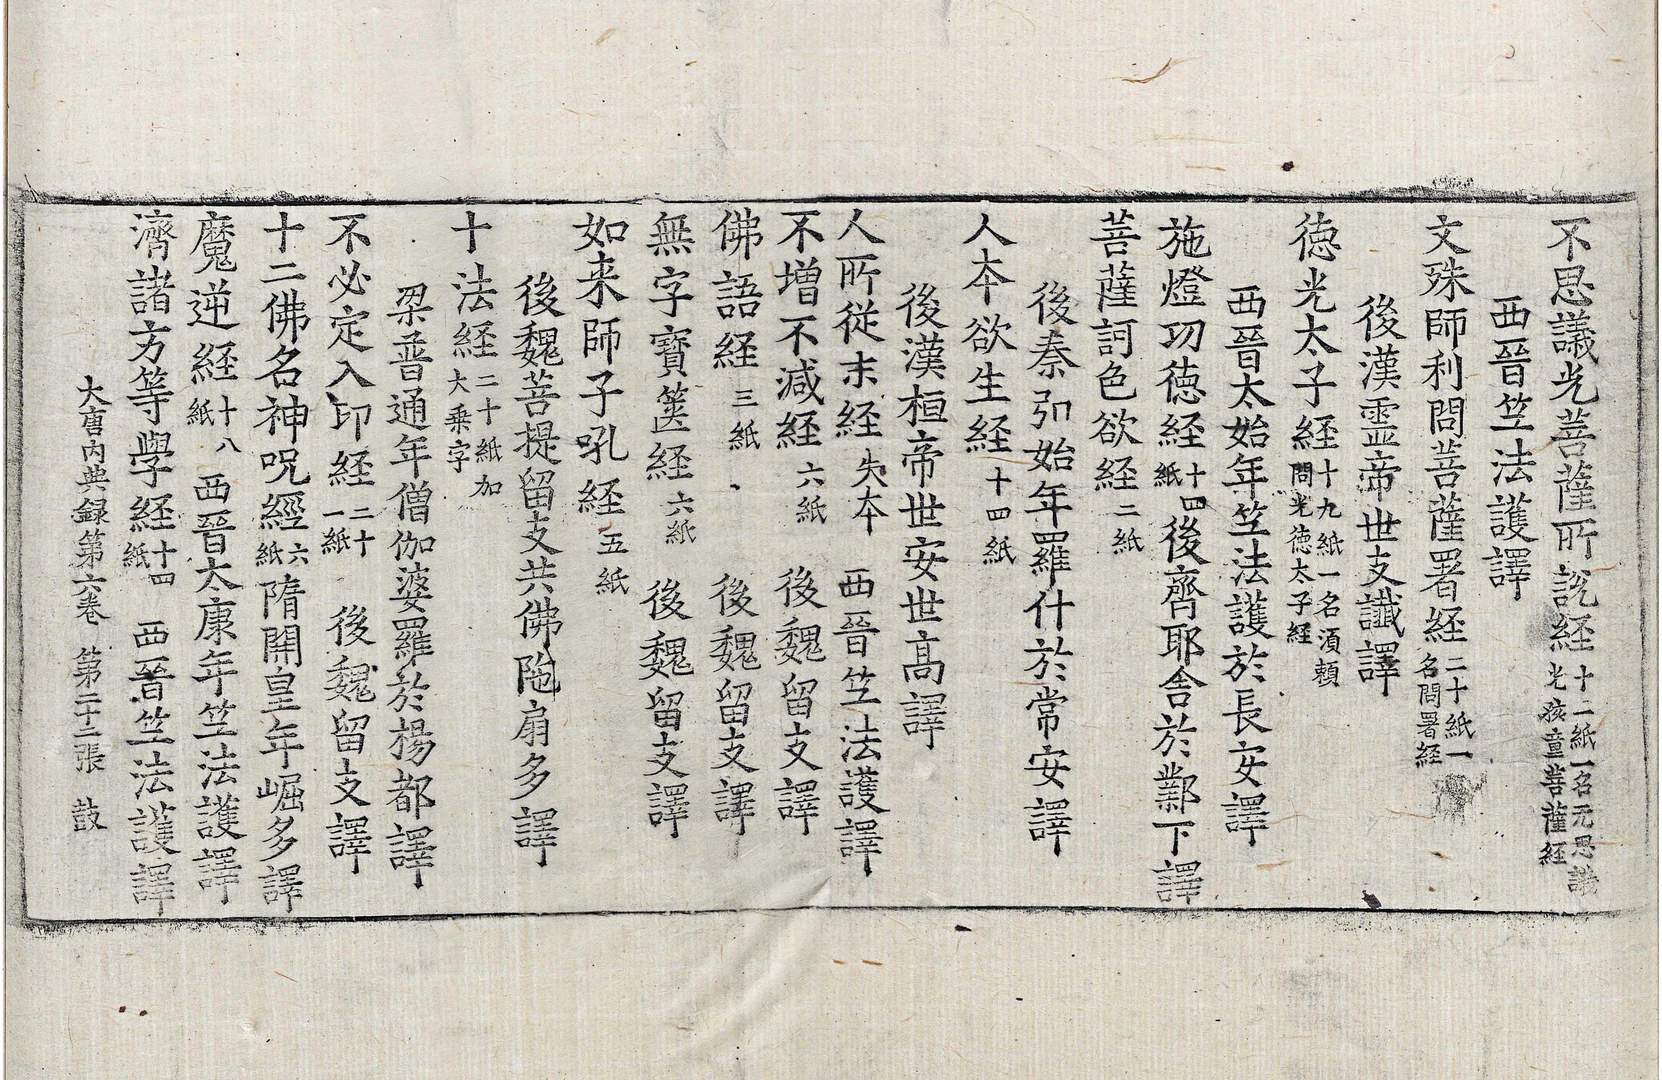 不思議光菩薩所說経十二紙一名元思議光孩童菩薩経
西晉竺法護譯
文殊師利問菩薩署経二十紙一名問署経
後漢靈帝世支讖譯
德光太子経十九紙一名湏頼問光德太子経
西晉太始年竺法護於長安譯
施燈功德経十四紙後齊耶舍於鄴下譯
菩薩訶色欲経二紙
後秦弘始年羅什於常安譯
人本欲生経十四紙
後漢桓帝世安世高譯
人所從来経失本 西晉竺法護譯
不增不減経六紙 後魏留支譯
佛語経三紙 後魏留支譯
無字寶篋経六紙 後魏留支譯
如来師子吼経五紙
後魏菩提留支共佛陁扇多譯
十法経二十紙加大乗字
梁普通年僧伽婆羅於楊都譯
不必定入印経二十一紙 後魏留支譯
十二佛名神呪經六紙隋開皇年崛多譯
魔逆経十八紙 西晉太康年竺法護譯
濟諸方等學経十四紙 西晉竺法護譯
大唐內典録第六卷 第二十三張 鼓